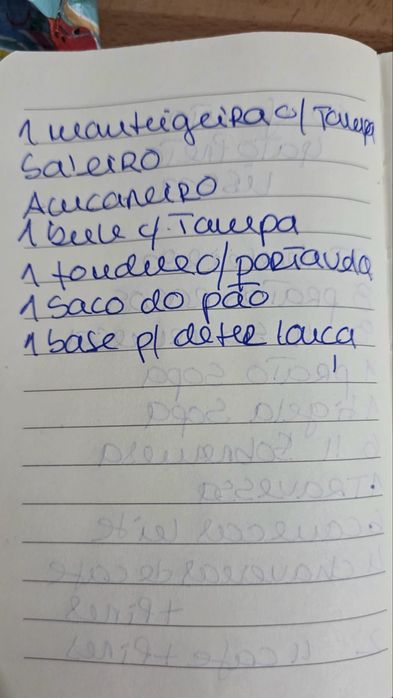 1 manteigeira c/ Tampa
Saleiro
Açucareiro
1 bule c/ Tampa
1 fondue c/
1 Saco do pão
1 base p/ louça